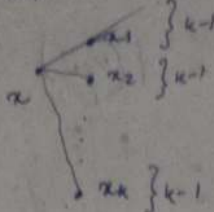 x₁ } k-1
x₂ } k-1
x
xₖ } k-1